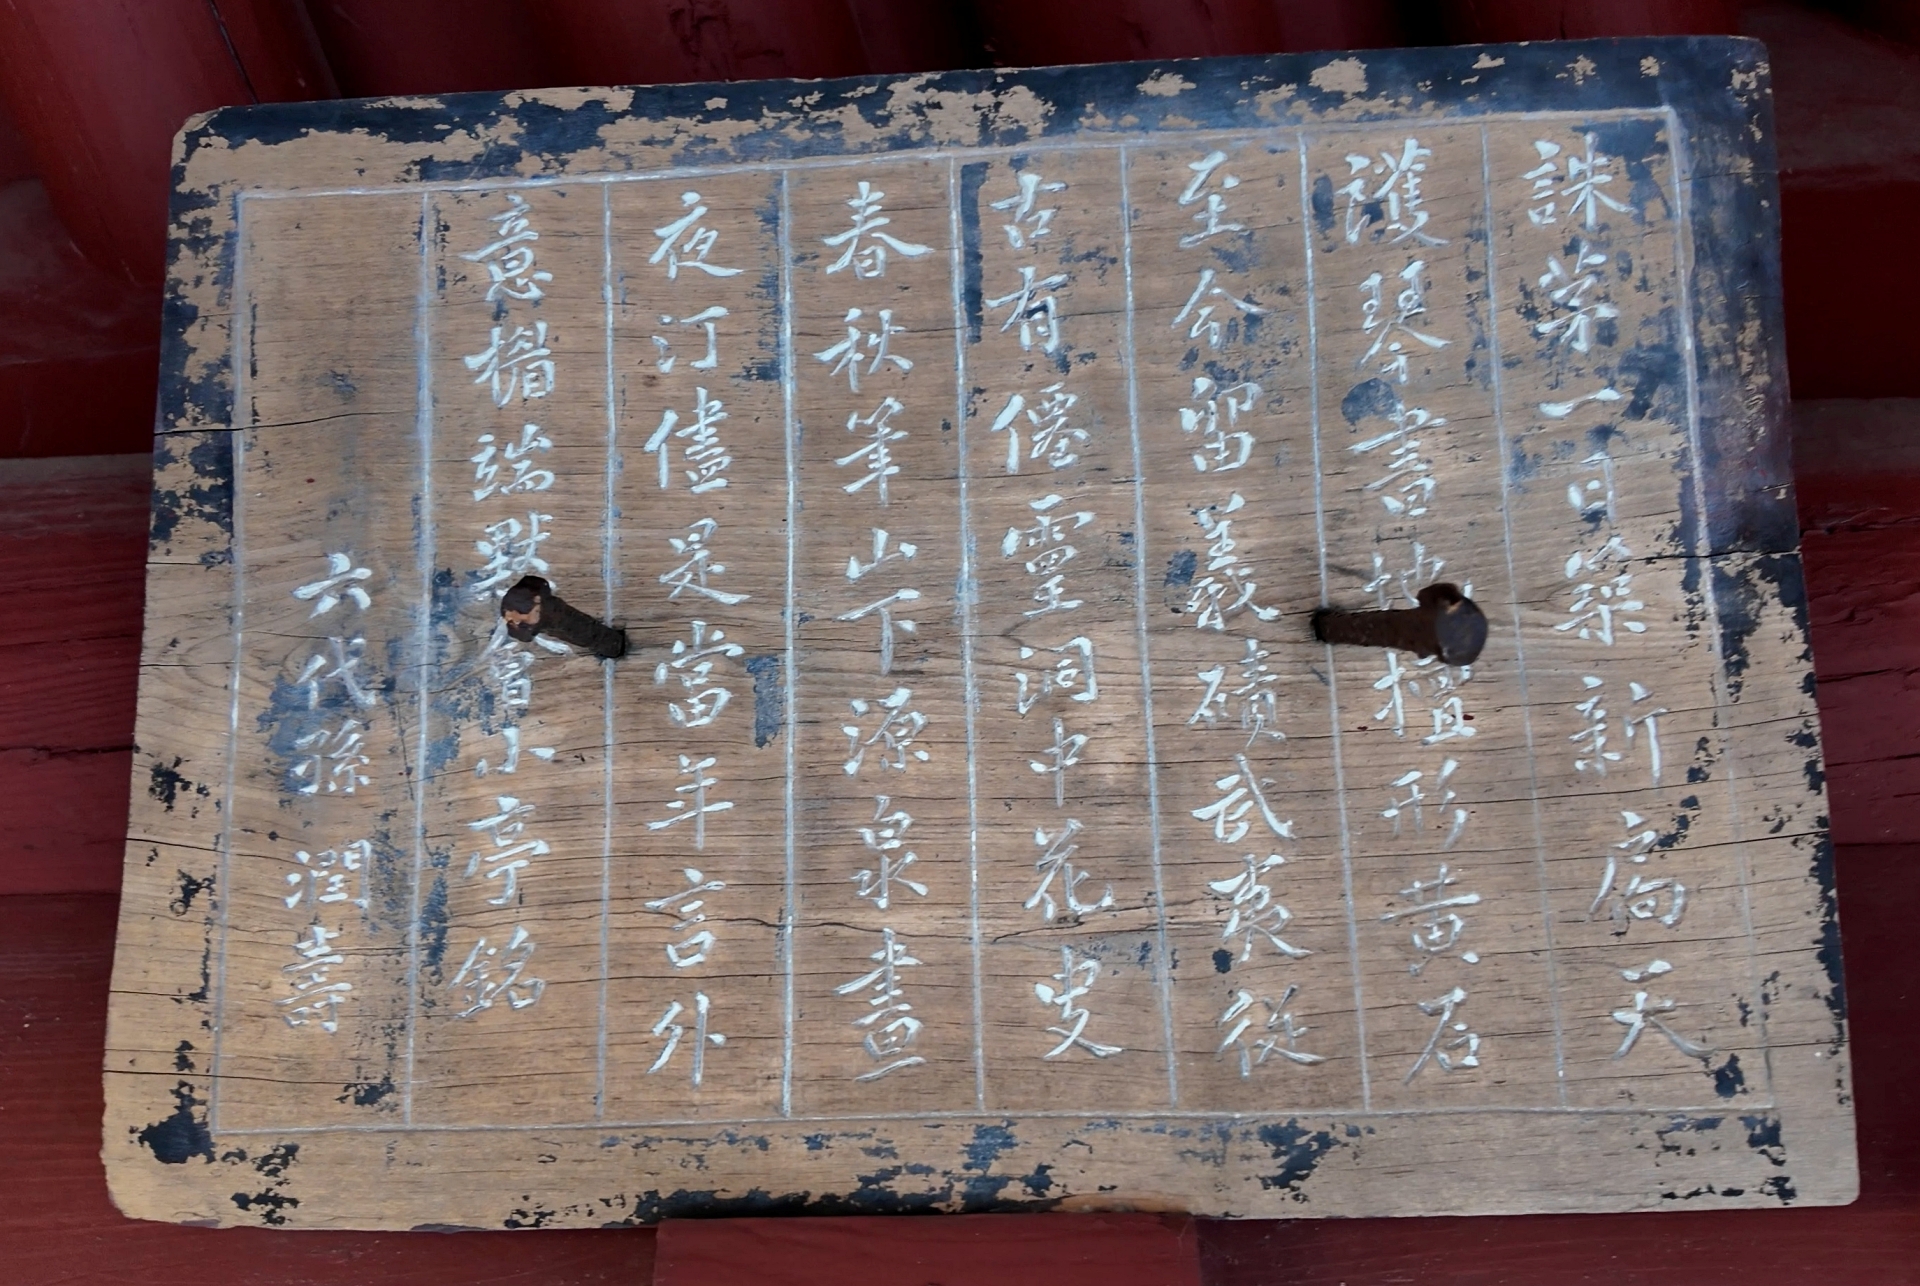 誅茅一日築新扃天
護琴書地擅形黃石
至今留義磧武夷從
古有僊靈洞中花叟
春秋筆山下源泉晝
夜汀儘是當年言外
意楣端默會小亭銘
六代孫 潤壽